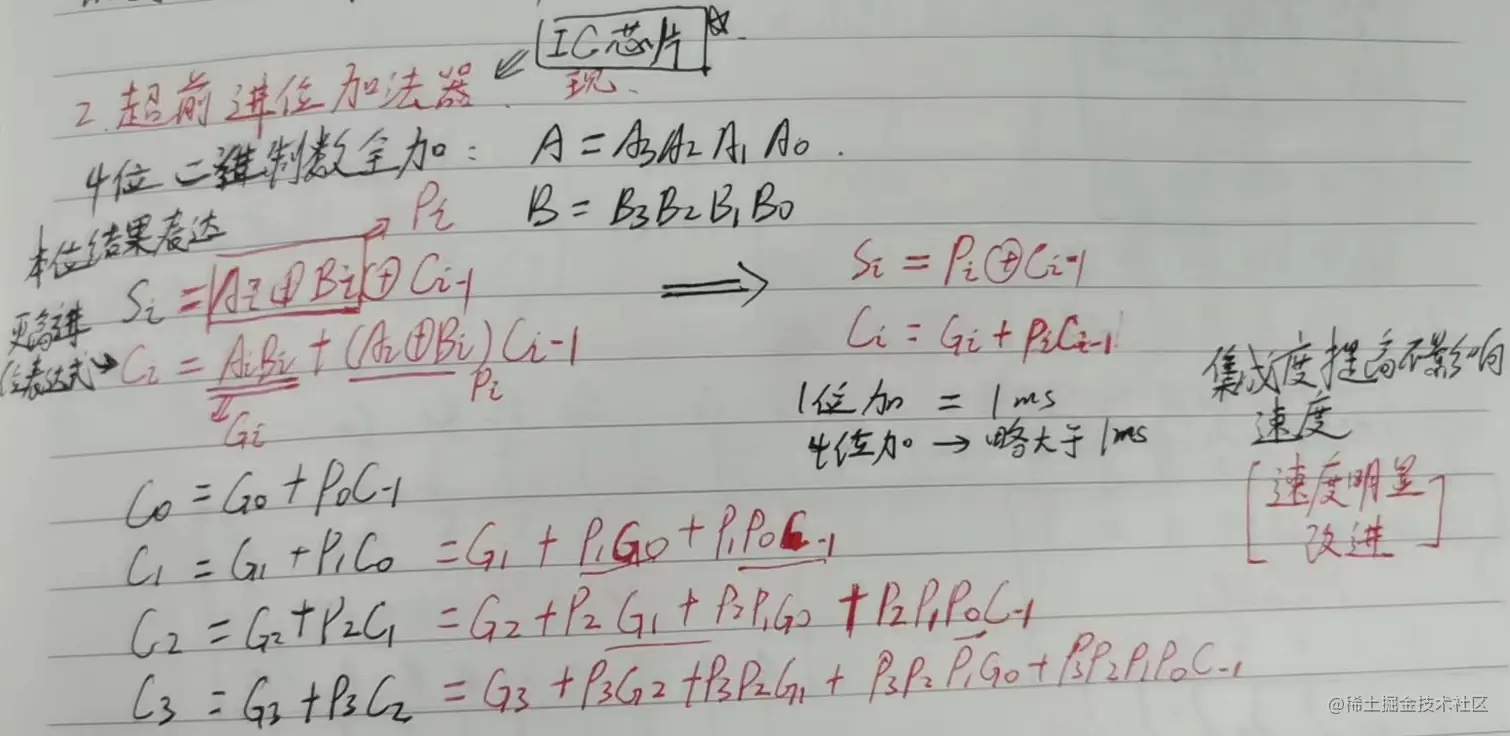 IC芯片
2. 超前进位加法器 现、
4位二进制数全加： A = A3A2A1A0 .
B = B3B2B1B0
本位结果表达
Pi
Si = Ai⊕Bi⊕Ci-1 ⟹ Si = Pi⊕Ci-1
更高进位表达式→ Ci = AiBi + (Ai⊕Bi)Ci-1
Pi
Gi
Ci = Gi + PiCi-1
1位加 = 1ms
4位加 → 略大于1ms
集成度提高不影响
速度
[速度明显
改进]
C0 = G0 + P0C-1
C1 = G1 + P1C0 = G1 + P1G0 + P1P0C-1
C2 = G2 + P2C1 = G2 + P2G1 + P2P1G0 + P2P1P0C-1
C3 = G3 + P3C2 = G3 + P3G2 + P3P2G1 + P3P2P1G0 + P3P2P1P0C-1
@稀土掘金技术社区